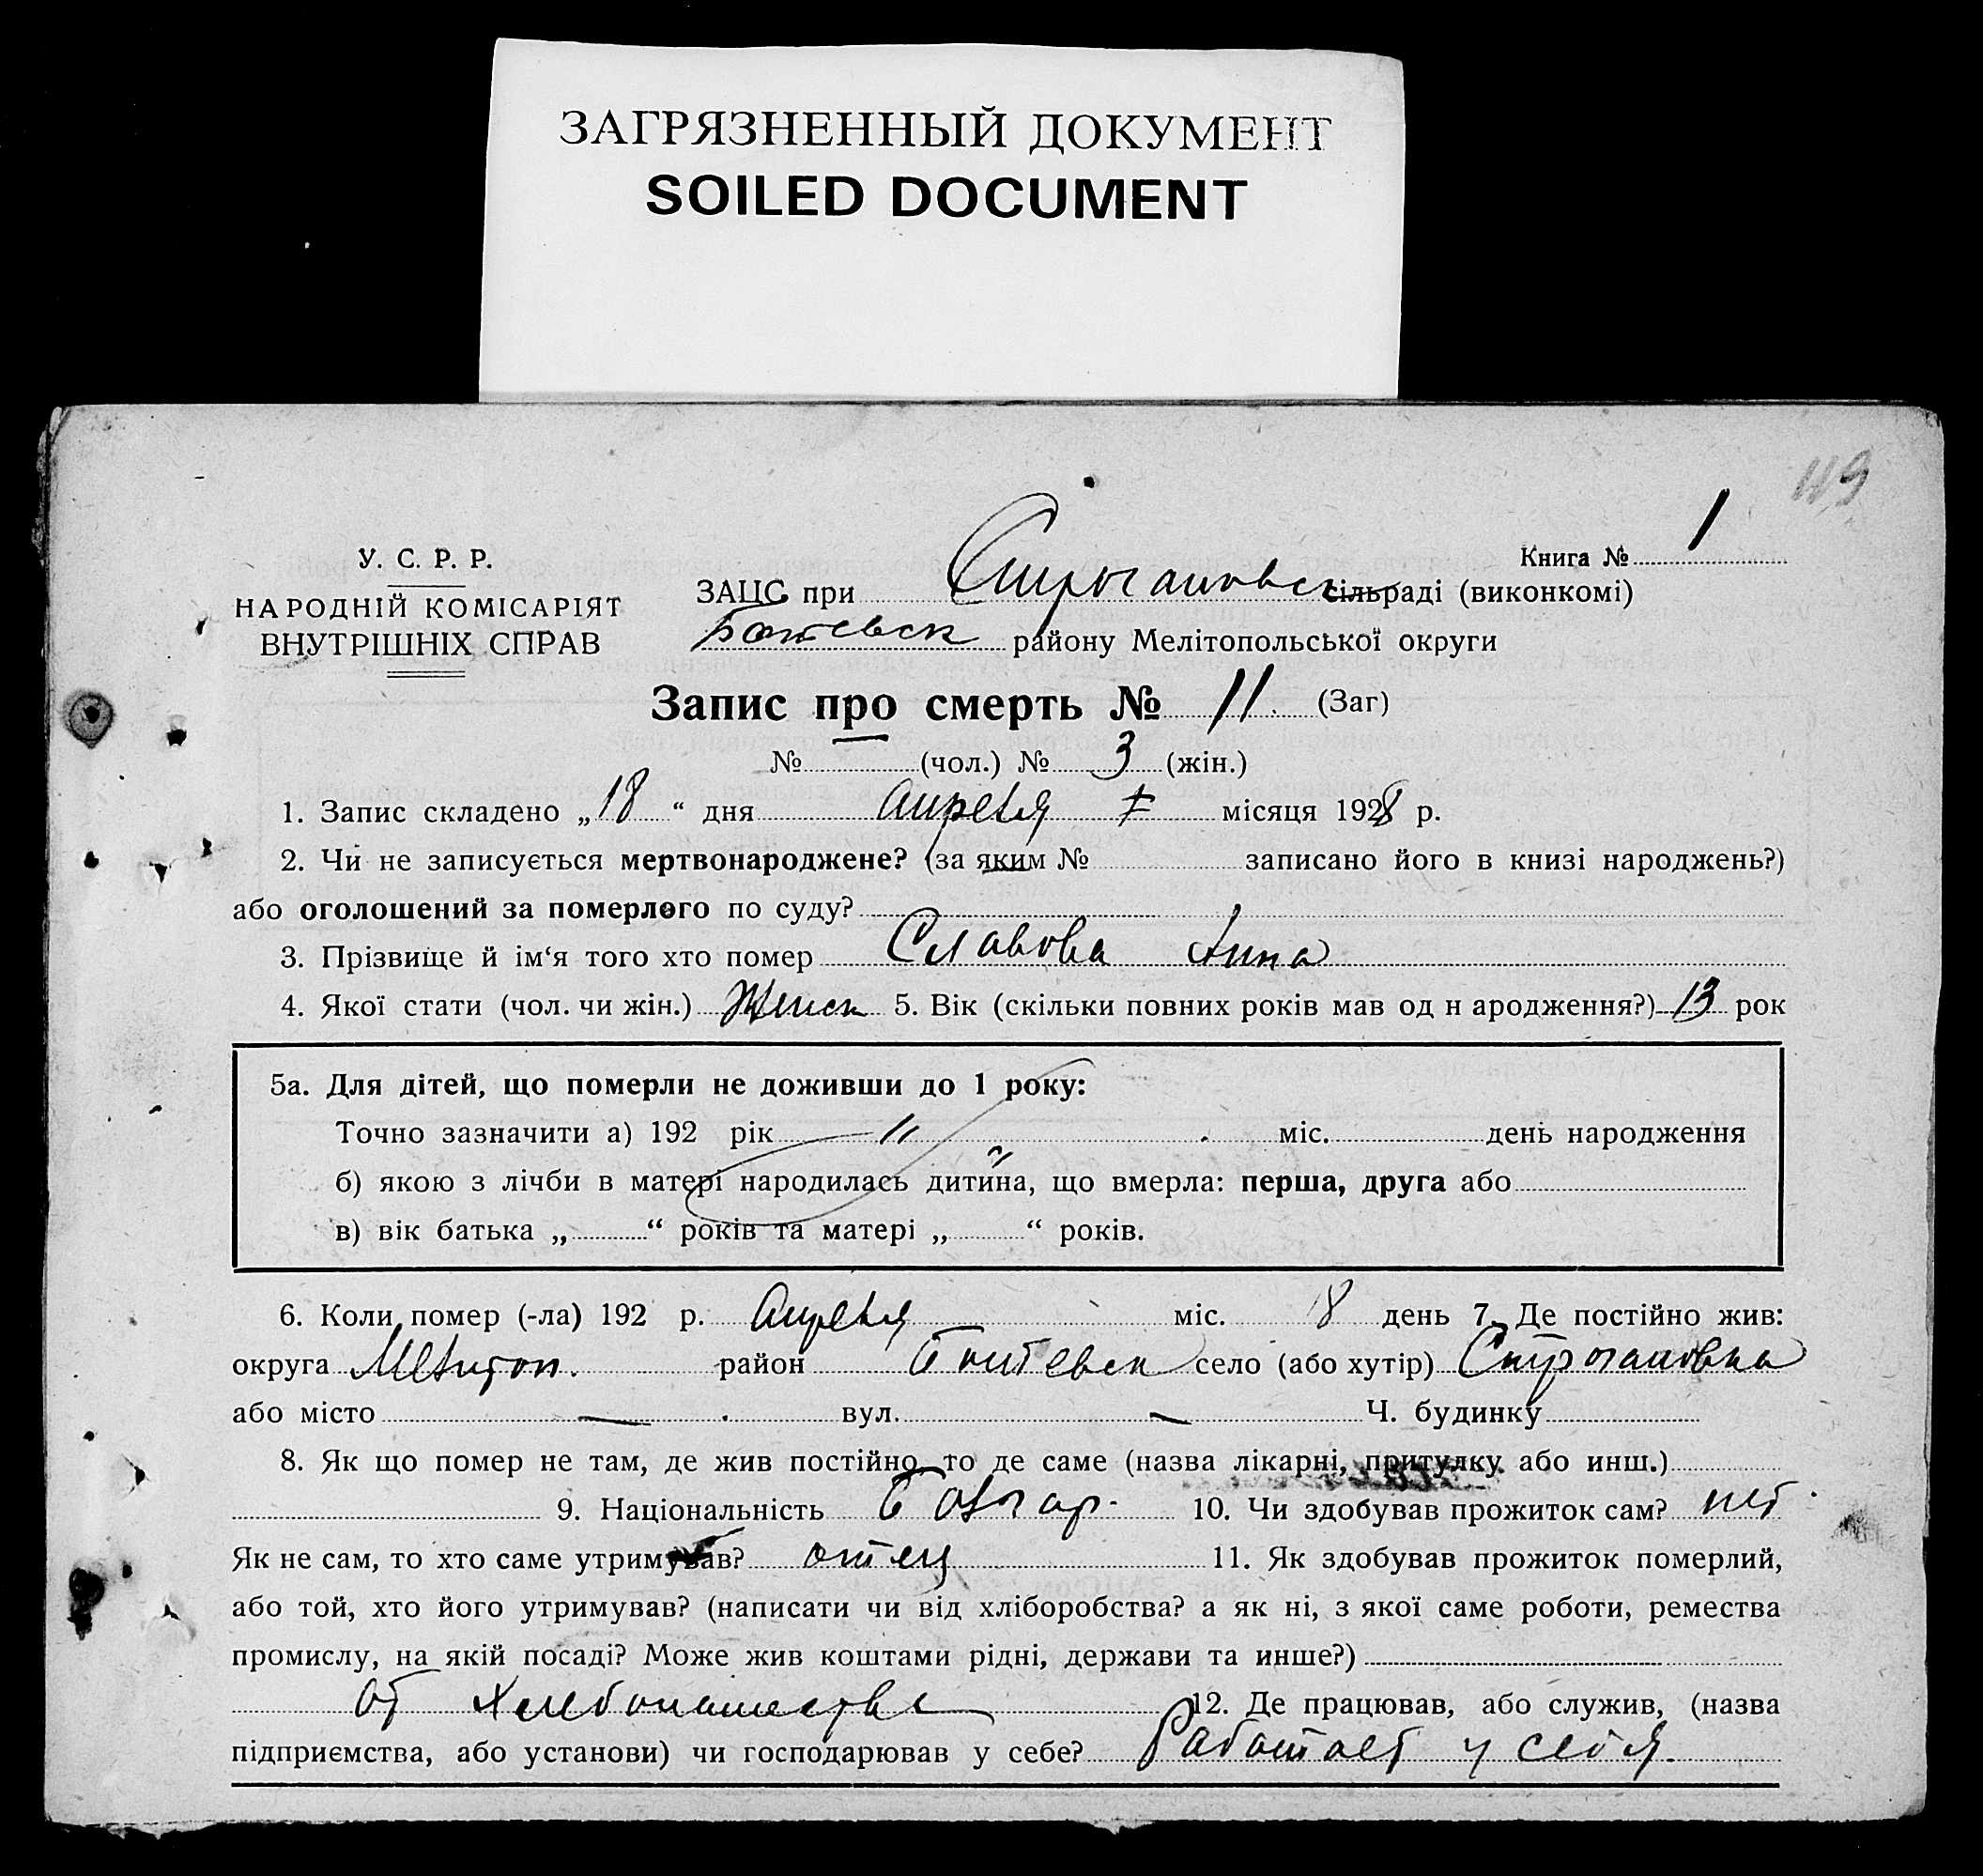 ЗАГРЯЗНЕННЫЙ ДОКУМЕНТ
SOILED DOCUMENT
119
Книга № 1
У. С. Р. Р.
НАРОДНІЙ КОМІСАРІЯТ
ВНУТРІШНІХ СПРАВ
ЗАЦС при Строгановск сільраді (виконкомі)
Ботевск району Мелітопольської округи
Запис про смерть № 11 (Заг)
№ (чол.) № 3 (жін.)
1. Запис складено „18“ дня Апреля місяця 1928 р.
2. Чи не записується мертвонароджене? (за яким № записано його в книзі народжень?)
або оголошений за померлого по суду?
3. Прізвище й ім‘я того хто помер Славова Анна
4. Якої стати (чол. чи жін.) Женск 5. Вік (скільки повних років мав од н ародження?) 13 рок
5а. Для дітей, що померли не доживши до 1 року:
Точно зазначити а) 192 рік " міс. день народження
б) якою з лічби в матері народилась дитина, що вмерла: перша, друга або
в) вік батька „ “ років та матері „ “ років.
6. Коли помер (-ла) 192 р. Апреля міс. 18 день 7. Де постійно жив:
округа Мелитоп. район Ботевск село (або хутір) Строгановка
або місто — вул. — Ч. будинку
8. Як що помер не там, де жив постійно то де саме (назва лікарні, притулку або инш.)
9. Національність Болгар. 10. Чи здобував прожиток сам? нет
Як не сам, то хто саме утримував? отец 11. Як здобував прожиток померлий,
або той, хто його утримував? (написати чи від хліборобства? а як ні, з якої саме роботи, ремества
промислу, на якій посаді? Може жив коштами рідні, держави та инше?)
от хлебопашества 12. Де працював, або служив, (назва
підприємства, або установи) чи господарював у себе? Работает у себя.